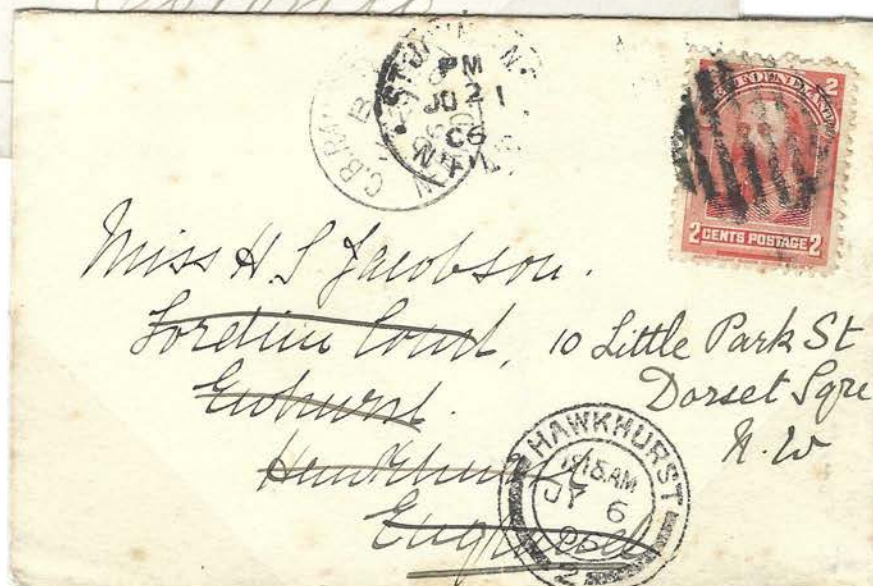 ST. JOHN'S
PM
JU 21
06
N'F'L'D
C.B.RA
NEWFOUNDLAND
2
2 CENTS POSTAGE 2
Miss H. S Jacobson.
Fordine Court, 10 Little Park St
Ewhurst. Dorset Sqre
Hawkhurst N. W
England
HAWKHURST
JY 6
06
2